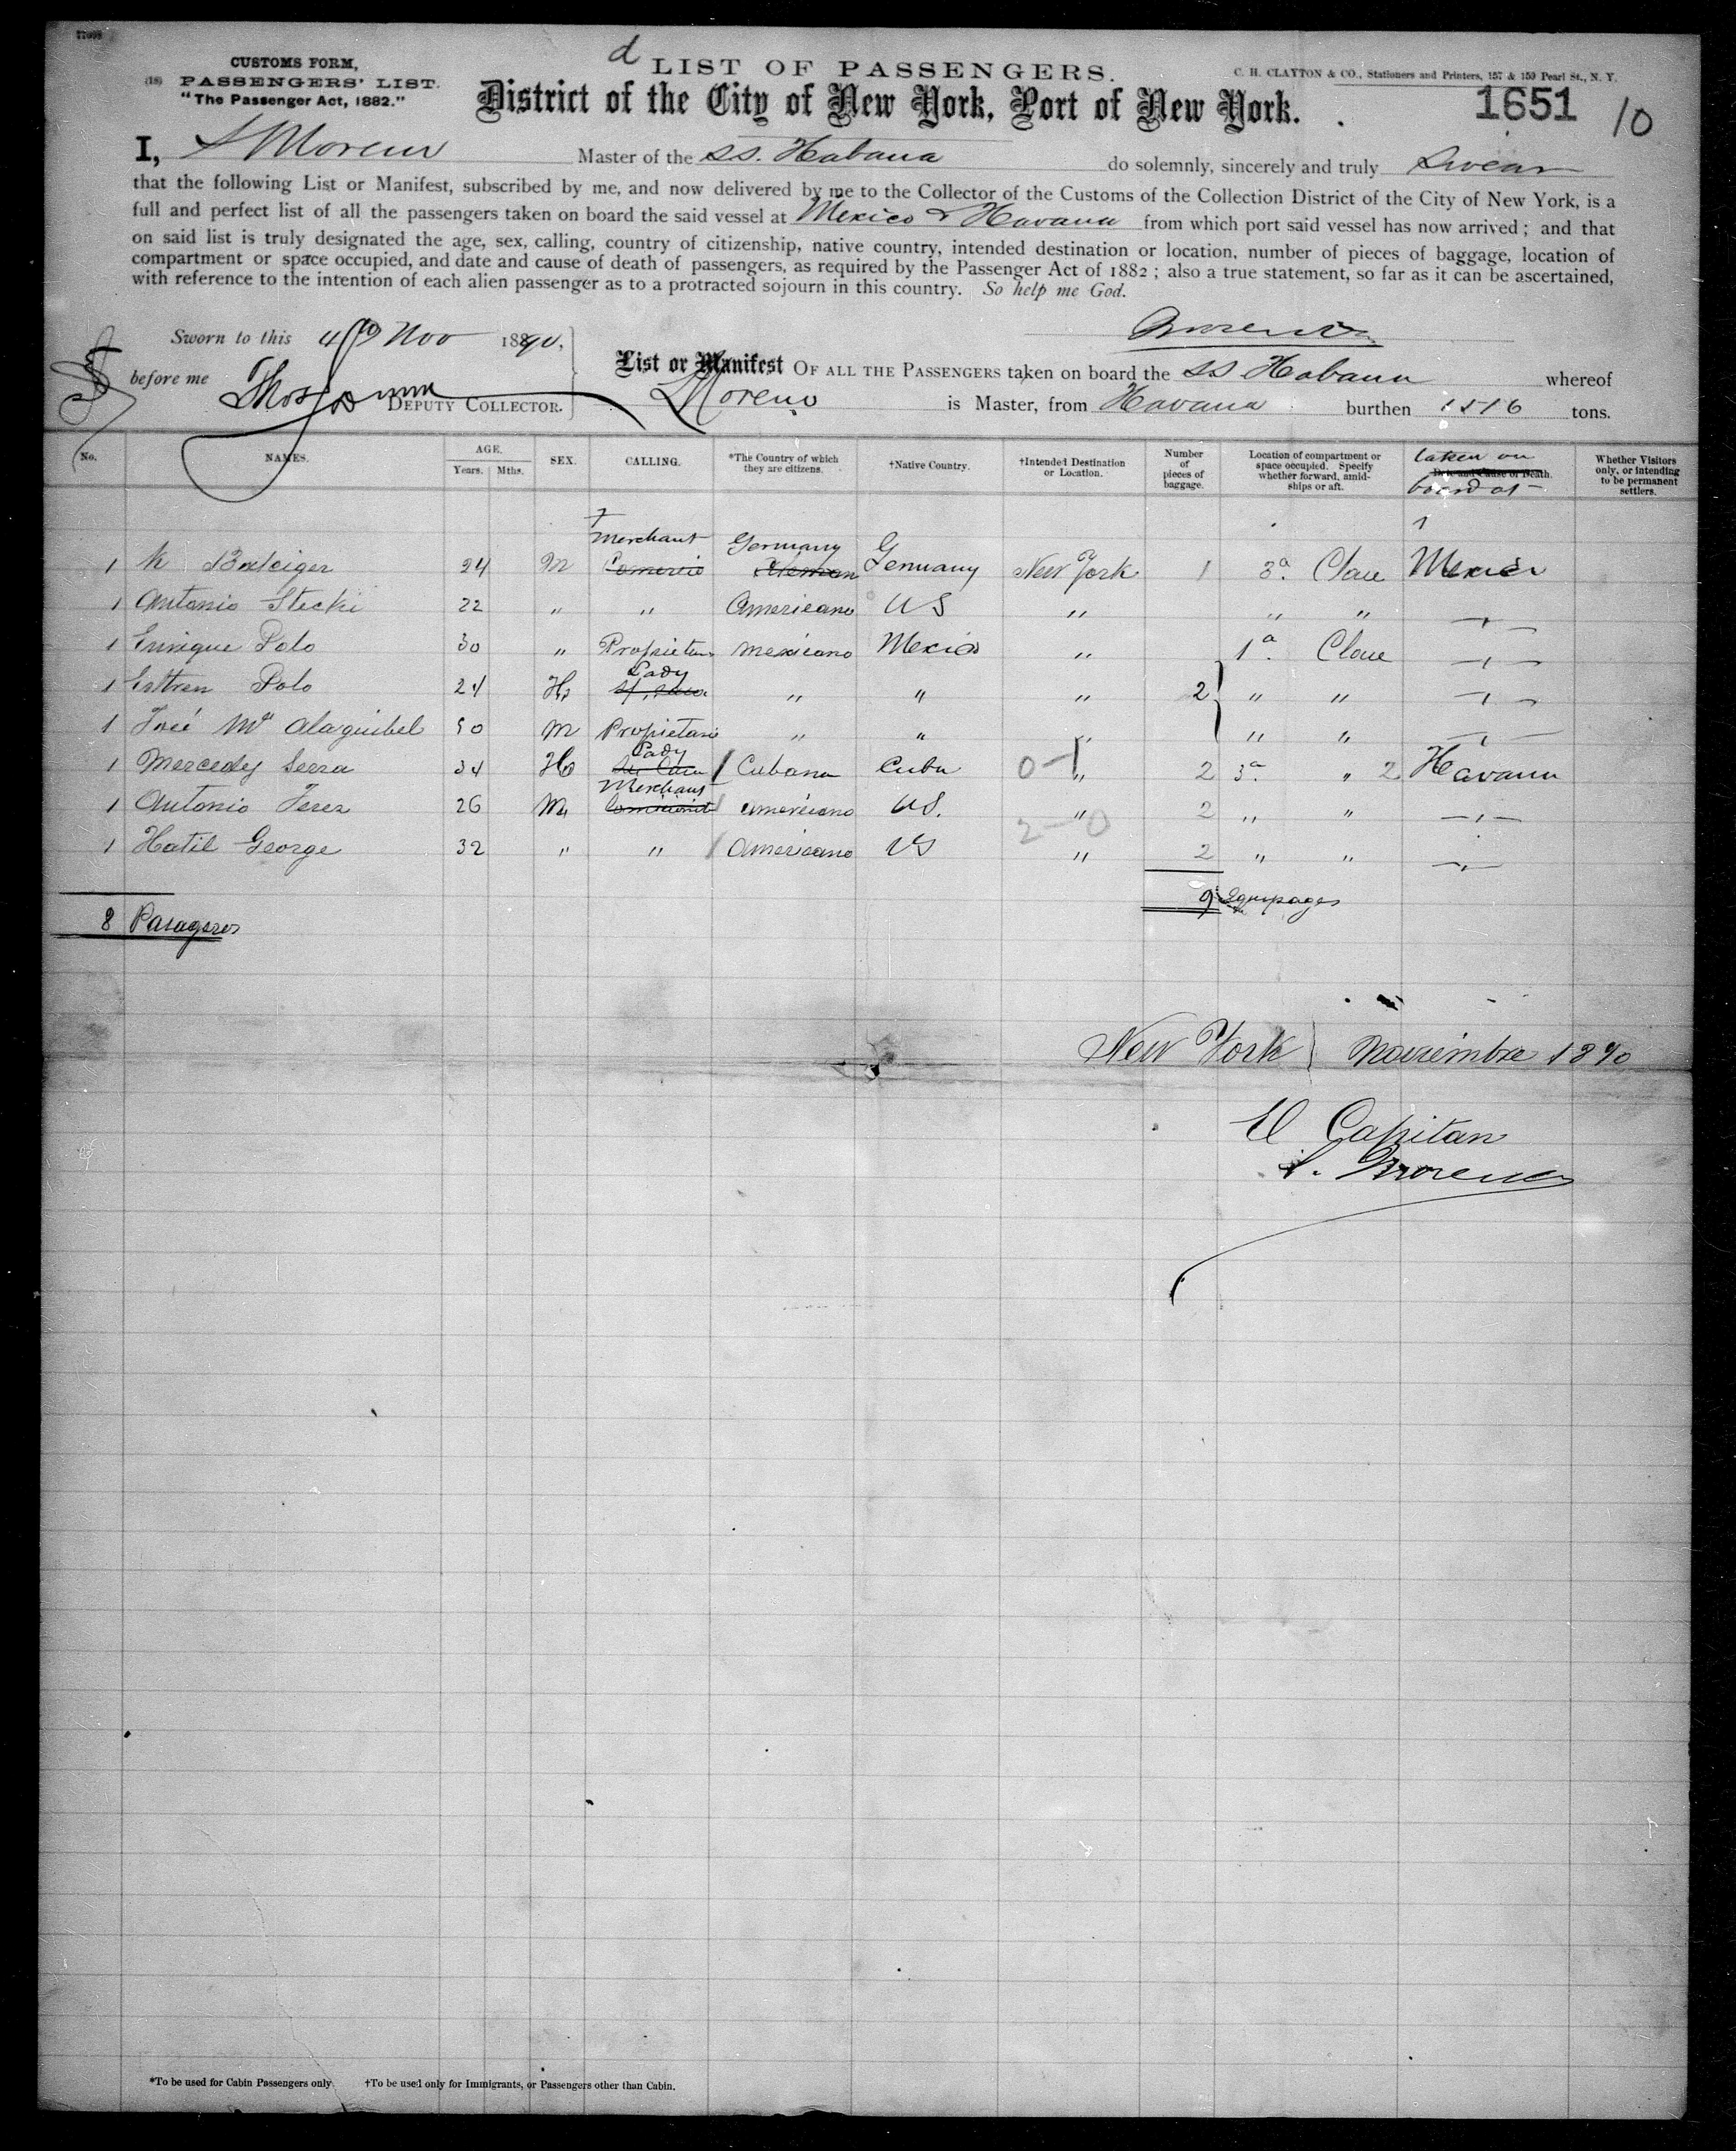 77098
CUSTOMS FORM,
(18) PASSENGERS' LIST.
"The Passenger Act, 1882."
d LIST OF PASSENGERS.
District of the City of New York, Port of New York.
C. H. CLAYTON & CO., Stationers and Printers, 157 & 159 Pearl St., N. Y.
1651 10
I, L Moreno Master of the SS. Habana do solemnly, sincerely and truly Swear
that the following List or Manifest, subscribed by me, and now delivered by me to the Collector of the Customs of the Collection District of the City of New York, is a
full and perfect list of all the passengers taken on board the said vessel at Mexico & Havana from which port said vessel has now arrived; and that
on said list is truly designated the age, sex, calling, country of citizenship, native country, intended destination or location, number of pieces of baggage, location of
compartment or space occupied, and date and cause of death of passengers, as required by the Passenger Act of 1882; also a true statement, so far as it can be ascertained,
with reference to the intention of each alien passenger as to a protracted sojourn in this country. So help me God.
Sworn to this 4th Nov 1890,
Moreno
before me Thos DEPUTY COLLECTOR.
List or Manifest OF ALL THE PASSENGERS taken on board the SS Habana whereof
L Moreno is Master, from Havana burthen 1516 tons.
No. NAMES. AGE. Years. Mths. SEX. CALLING. *The Country of which they are citizens. †Native Country. †Intended Destination or Location. Number of pieces of baggage. Location of compartment or space occupied. Specify whether forward, amidships or aft. taken on Date and Cause of Death. board at Whether Visitors only, or intending to be permanent settlers.
Merchant Germany
1 24 M Comercio Aleman Germany New York 1 3a Clase Mexico
1 Antonio Stecki 22 " " Americano US " " " "
1 Enrique Polo 30 " Propietario Mexicano Mexico " 1a. Clase "
Lady
1 Polo 24 H " " " 2 " " "
1 José Ma Alaguibel 50 M Propietario " " " " " "
Lady
1 Mercedes Serra 34 H Su Casa Cubana Cuba 0-1 " 2 3a " 2 Havana
Merchant
1 Antonio Ferer 26 M americano US. " 2 " " "
2-0
1 Hatil George 32 " " Americano US " 2 " " "
9 Equipages
8 Pasageros
New York Noviembre 1890
El Capitan
L. Moreno
*To be used for Cabin Passengers only. †To be used only for Immigrants, or Passengers other than Cabin.